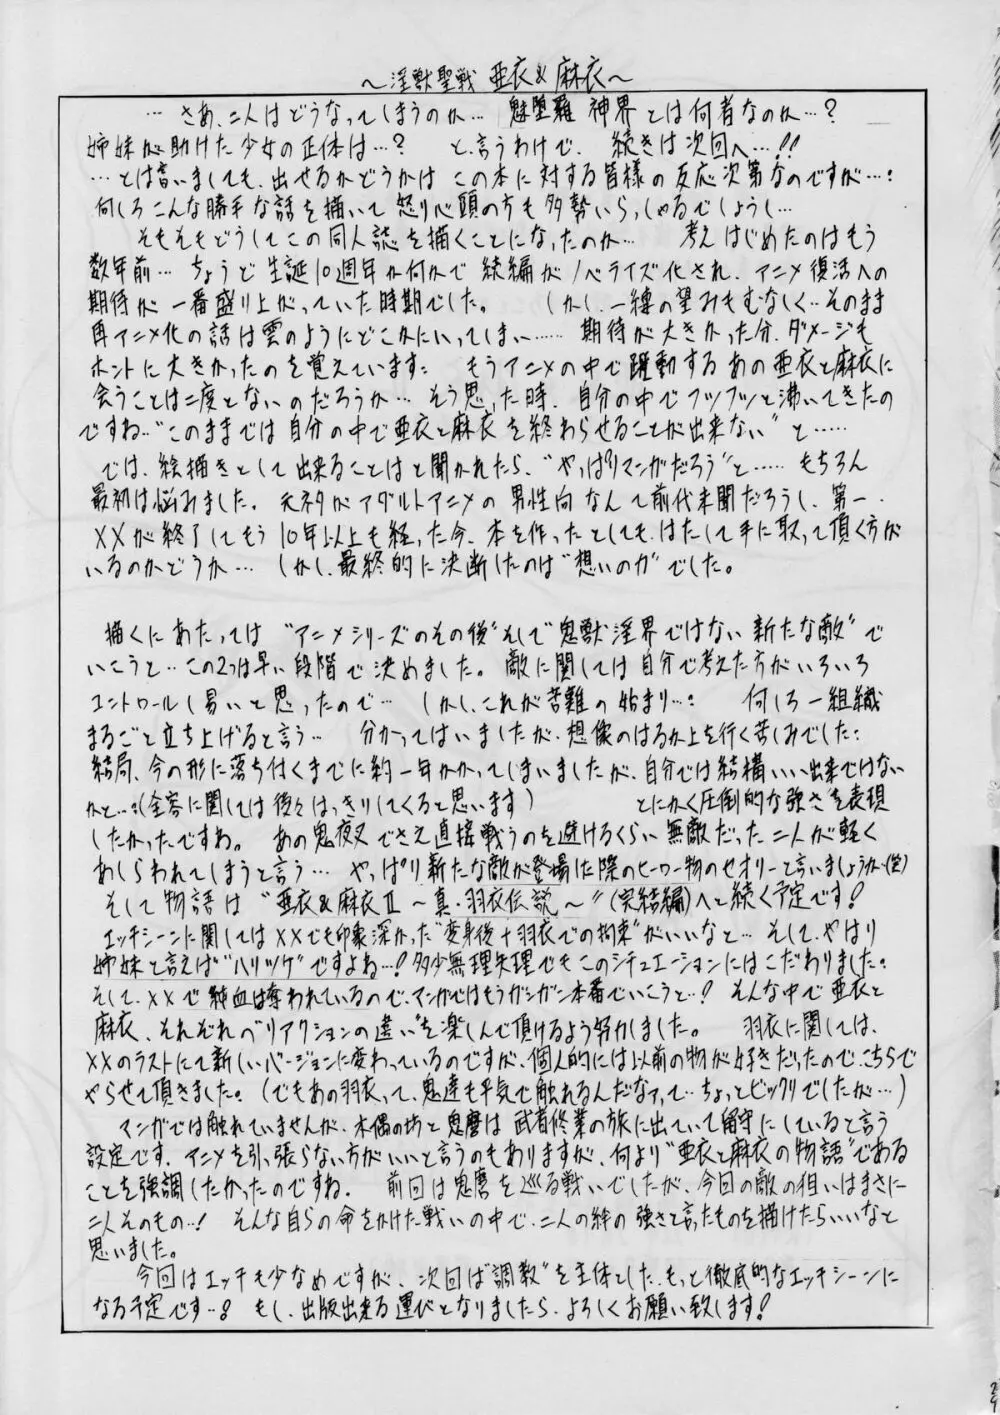 ～淫獣聖戦 亜衣&麻衣～
…さあ、二人はどうなってしまうのか… 魅堕羅 神界とは何者なのか…?
姉妹が助けた少女の正体は…? と、言うわけで、 続きは次回へ…!!
…とは言いましても、出せるかどうかは この本に対する皆様の反応次第なのですが…:
何しろこんな勝手な話を描いて 怒り心頭の方も多勢いらっしゃるでしょうし…
そもそもどうしてこの同人誌を描くことになったのか… 考えはじめたのはもう
数年前… ちょうど 生誕10週年か何かで 続編がノベライズ化され、アニメ復活への
期待が 一番盛り上がっていた時期でした。 しかし、一縷の望みもむなしく…そのまま
再アニメ化の話は雲のようにどこかにいってしまい…… 期待が大きかった分、ダメージも
ホントに大きかったのを覚えています: もうアニメの中で躍動するあの亜衣と麻衣に
会うことは二度とないのだろうか… そう思った時、自分の中でフツフツと沸いてきたの
ですね…"このままでは自分の中で亜衣と麻衣を終わらせることが出来ない"と……
では、絵描きとして出来ることはと聞かれたら、"やっぱりマンガだろう"と…… もちろん
最初は悩みました。元ネタがアダルトアニメの男性向なんて前代未聞だろうし、第一、
XXが終了してもう10年以上も経った今、本を作ったとしても、はたして手に取って頂く方が
いるのかどうか… しかし、最終的に決断したのは"想いの力"でした。
描くにあたっては "アニメシリーズのその後"そして"鬼獣淫界ではない新たな敵"で
いこうと…この2つは早い段階で決めました。敵に関しては自分で考えた方がいろいろ
コントロールし易いと思ったので… しかし、これが苦難の始まり…: 何しろ一組織
まるごと立ち上げると言う… 分かってはいましたが、想像のはるか上を行く苦しみでした:
結局、今の形に落ち付くまでに約一年かかってしまいましたが、自分では結構いい出来ではない
かと…:(全容に関しては後々はっきりしてくると思います) とにかく"圧倒的な強さ"を表現
したかったですね。 あの鬼夜叉でさえ直接戦うのを避けるくらい無敵だった二人が軽く
あしらわれてしまうと言う… やっぱり新たな敵が登場した際のヒーロー物のセオリーと言いましょうか(笑)
そして物語は"亜衣&麻衣II ～真・羽衣伝説～"(完結編)へと続く予定です!
エッチシーンに関してはXXでも印象深かった"変身後+羽衣での拘束"がいいなと… そして、やはり
姉妹と言えば"ハリツケ"ですよね…! 多少無理矢理でもこのシチュエーションにはこだわりました:
そして、XXで純血は奪われているので、マンガではもうガンガン本番でいこうと…! そんな中で亜衣と
麻衣、それぞれ"リアクションの違い"を楽しんで頂けるよう努力しました。 羽衣に関しては、
XXのラストにて新しいバージョンに変わっているのですが、個人的には以前の物が好きだったのでこちらで
やらせて頂きました。(でもあの羽衣って、鬼達も平気で触れるんだなァって…ちょっとビックリでしたが…)
マンガでは触れていませんが、木偶の坊と鬼麿は武者修業の旅に出ていて留守にしていると言う
設定です。アニメを引っ張らない方がいいと言うのもありますが、何より"亜衣と麻衣の物語"である
ことを強調したかったのですね. 前回は鬼麿を巡る戦いでしたが、今回の敵の狙いはまさに
二人そのもの…! そんな自らの命をかけた戦いの中で、二人の絆の強さと言ったものを描けたらいいなと
思いました。
今回はエッチも少なめですが、次回は"調教"を主体とした、もっと徹底的なエッチシーンに
なる予定です…! もし、出版出来る運びとなりましたら、よろしくお願い致します!
24